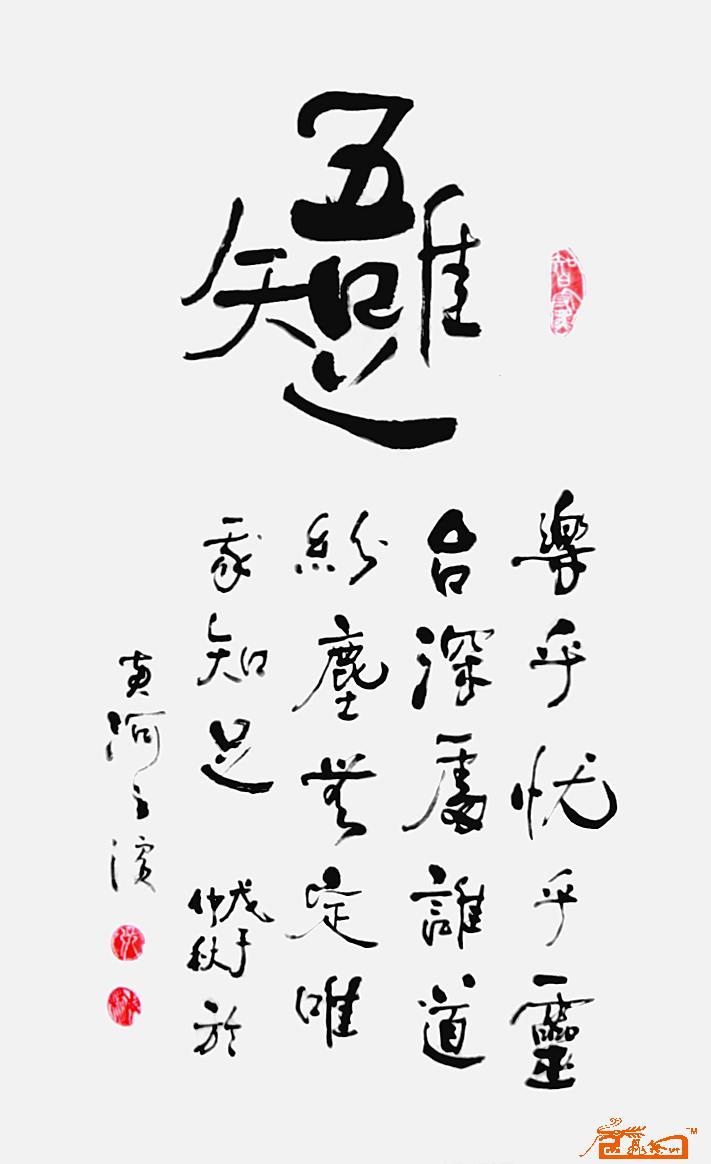 吾唯知足
樂乎忧乎靈
台深處誰道
紛塵無定唯
我知足 戊子仲秋於
黄河之濱